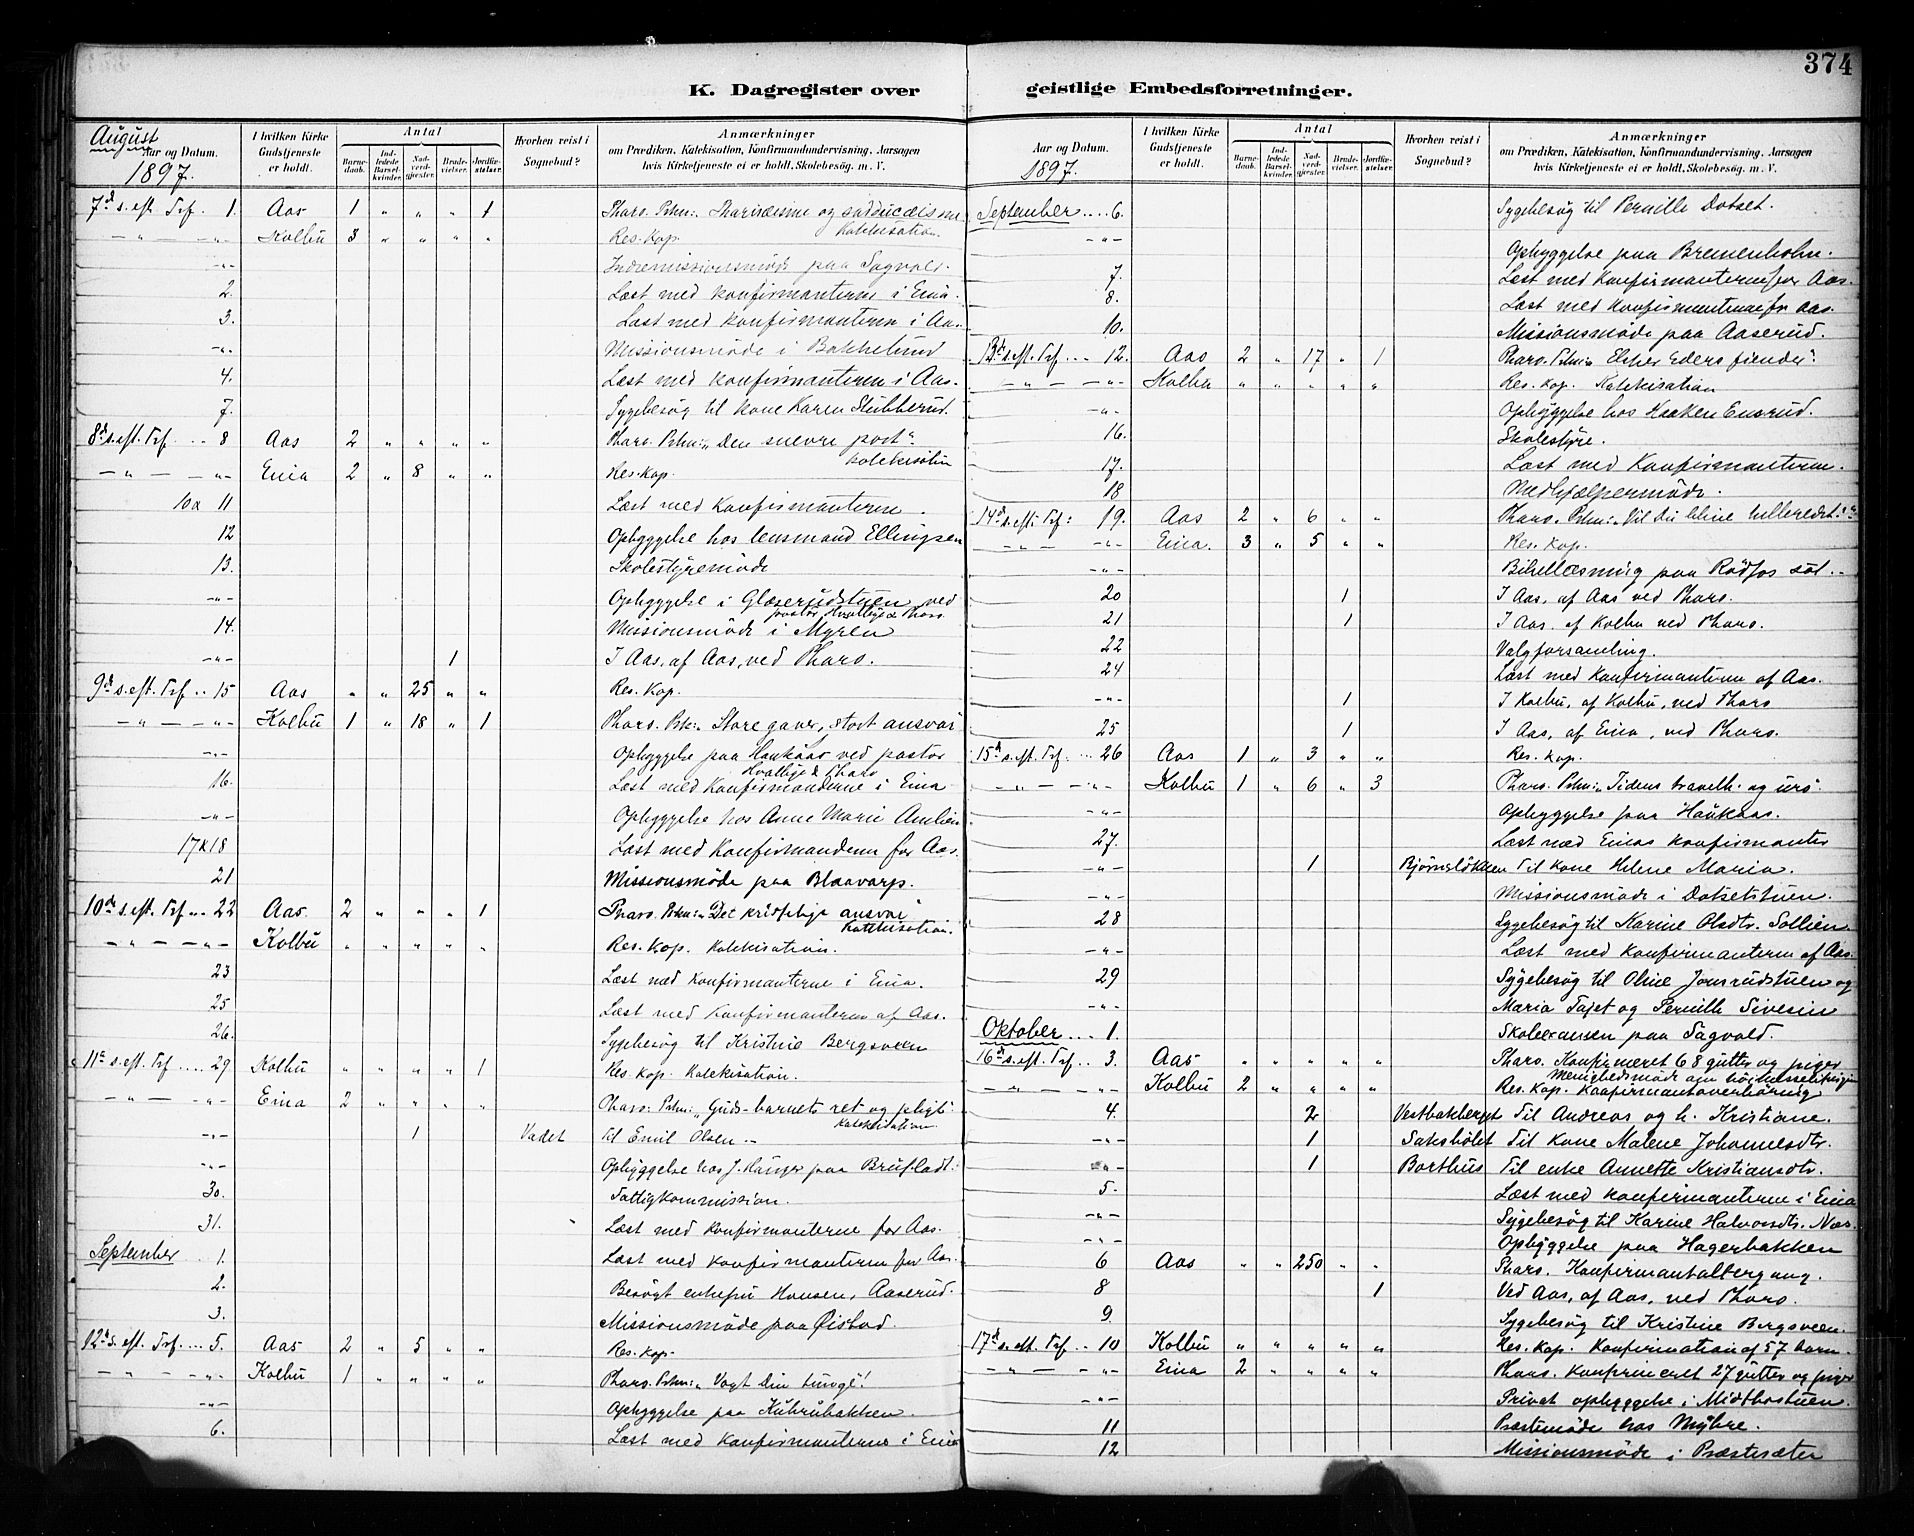 374
K. Dagregister over geistlige Embedsforretninger.
August
Aar og Datum.
1897.
I hvilken Kirke Gudstjeneste er holdt.
Antal
Barnedaab.
Indledede Barselkvinder.
Nadverdgjester.
Brudevielser.
Jordfæstelser.
Hvorhen reist i Sognebud?
Anmærkninger
om Prædiken, Katekisation, Konfirmandundervisning. Aarsagen
hvis Kirketjeneste ei er holdt. Skolebesøg. m. V.
7d s. eft. Trf. 1. Aas 1 " " " 1 Tharo. Prkn: Farisæisme og sadducæisme
Katekisation.
- " - - "- Kolbu 3 " " " " Res. Kop.
-"- Indremissionsmøde paa Sagvold.
2. Læst med konfirmanterne i Eina.
3. Læst med konfirmanterne i Aas.
-"- Missionsmøde i Bakkelund
4. Læst med konfirmanterne i Aas.
7. Sygebesøg til kone Karen Stubberud.
8d s. eft. Trf. .. 8 Aas 2 " " " " Tharo. Prkn: "Den snevre port"
katekisation
- " - "- Eina 2 " 8 " " Res. Kop.
10 & 11 Læst med Konfirmanterne.
12 Opbyggelse hos lensmand Ellingsen
13. Skolestyremøde
-"- Opbyggelse i Glæserudstuen ved
pastor Hvattuge & Tharo.
14. Missionsmøde i Myren
-"- 1 I Aas, af Aas, ved Tharo.
9d s. eft. Trf. .. 15 Aas " " 25 " " Res. Kop.
- " - - "- Kolbu 1 " 18 " 1 Tharo. Prk: "Store gaver, stort ansvar
-"- Opbyggelse paa Haukaas ved pastor
& Tharo
16. Læst med Konfirmanderne i Eina
-"- Opbyggelse hos Anne Marie Amlien
17 & 18 Læst med Konfirmanderne for Aas.
21 Missionsmøde paa Blaavarp.
10d s. eft. Trf .. 22 Aas. 2 " " " 1 Tharo. Prkn: "Det kristelige ansvar"
Katekisation.
- " - - "- Kolbu " " " " " Res. Kop. Katekisation.
23 Læst med konfirmanterne i Eina.
25 Læst med Konfirmanterne af Aas.
26. Sygebesøg til Kristine Bergsveen
11te s. eft. Trf .... 29 Kolbu " " " " 1 Res. Kop. Katekisation.
- " - - "- Eina 2 " " " " Tharo: Prkn: "Guds-barnets ret og pligt"
Katekisation.
-"- 1 Vadet til Emil Olsen.
-"- Opbyggelse hos J. Hauger paa Brufladt.
30. Fattigkommission.
31. Læst med konfirmanterne for Aas.
September .. 1. Læst med konfirmanterne for Aas.
2. Besøgt enkefru Hansen, Aaserud.
3. Missionsmøde paa Øistad.
12te s. eft. Trf. ... 5. Aas 2 " 5 " " Res. Kop.
- " - - "- Kolbu 1 " " " " Tharo. Prkn: "Vogt Din tunge!
-"- Opbyggelse paa Kubrubakken.
6. Læst med konfirmanterne i Eina
Aar og Datum.
1897.
I hvilken Kirke Gudstjeneste er holdt.
Antal
Barnedaab.
Indledede Barselkvinder.
Nadverdgjester.
Brudevielser.
Jordfæstelser.
Hvorhen reist i Sognebud?
Anmærkninger
om Prædiken, Katekisation, Konfirmandundervisning. Aarsagen
hvis Kirketjeneste ei er holdt. Skolebesøg. m. V.
September .... 6. Sygebesøg til Pernille Dotset.
-"- Opbyggelse paa Bremenholm.
7. Læst med Konfirmanterne for Aas.
8. Læst med Konfirmanterne for Aas.
10. Missionsmøde paa Aaserud.
13d s. eft. Trf. .. 12. Aas 2 " 17 " 1 Tharo. Prkn: "Elsker Eders fiender"
- " - - "- Kolbu " " " " " Res. Kop. Katekisation
-"- Opbyggelse hos Haaken Ensrud.
16. Skolestyre.
17. Læst med Konfirmanterne.
18 Medhjælpermøde.
14d s. eft. Trf: 19. Aas 2 " 6 " " Tharo. Prkn: "Vil Du blive helbredet?"
- " - "- Eina. 3 " 5 " " Res. Kop.
-"- Bibellæsning paa Rødfos søl.
20 1 I Aas, af Aas ved Tharo.
21 1 I Aas. af Kolbu ved Tharo.
22 Valgforsamling.
24 Læst med konfirmanterne af Aas.
-"- 1 I Kolbu, af Kolbu, ved Tharo
25 1 I Aas, af Eina, ved Tharo.
15d s. eft. Trf. ... 26 Aas 1 " 3 " " Res. Kop.
- " - - "- Kolbu 1 " 6 " 3 Tharo. Prkn: "Tidens travelh. og uro".
-"- Opbyggelse paa Haukaas.
27. Læst med Einas konfirmanter
-"- 1 Bjørnsløkken Til kone Helene Maria.
-"- Missionsmøde i Dotsetstuen.
28 Sygebesøg til Karine Olsdtr. Sollien.
-"- Læst med konfirmanterne af Aas.
29 Sygebesøg til Oline Jonsrudstuen og
-"- Maria Tajet og Pernille Sivesin
Oktober .... 1. Skoleexamen paa Sagvold.
16d s. eft. Trf .... 3. Aas " " " " " Tharo. Konfirmeret 68 gutter og piger
Menighedsmøde
- " - "- Kolbu 2 " " " " Res. Kop. Konfirmantoverhøring
4. 2 Vestbakberget Til Andreas og h. Kristiane.
-"- 1 Saksbølet Til kone Malene Johannesdtr.
-"- 1 Borthus Til enke Annette Kristiansdtr.
5. Læst med konfirmanterne i Eina
-"- Sygebesøg til Karine Halvorsdtr. Næs.
-"- Opbyggelse paa Hagerbakken
6 Aas " " 250 " " Tharo. Konfirmantaltergang.
8 1 Ved Aas, af Aas, ved Tharo.
9 Sygebesøg til Kristine Bergsveen.
17d s. eft. Trf. .. 10 Kolbu " " " " " Res. Kop. Konfirmation af 57 barn.
- " - "- Eina 2 " " " " Tharo. Konfirmeret 27 gutter og piger
-"- Privat opbyggelse i Midtbostuen.
11 Præstemøde hos Myhre.
12 Missionsmøde i Præstesæter